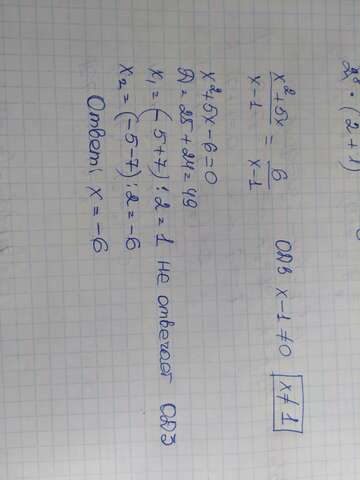 2⁸ · (2+1)
x²+5x / x-1 = 6 / x-1 ОДЗ x-1≠0 x≠1
x²+5x-6=0
D=25+24=49
x₁=(-5+7):2=1 не отвечает ОДЗ
x₂=(-5-7):2=-6
Ответ: x=-6